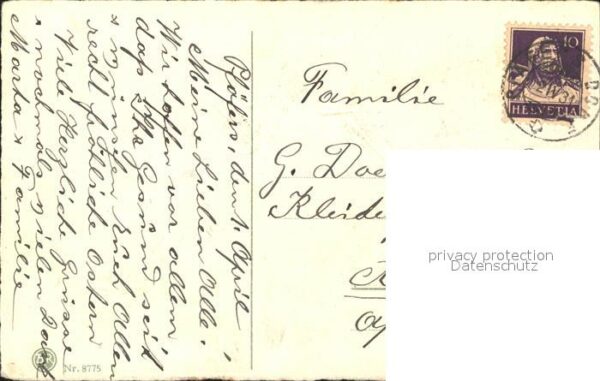 Pfäfers, den 1. April
Meine Lieben Alle.
Wir hoffen vor allem
dass Ihr Gesund seit
& wünschen Euch Allen
recht fröhliche Ostern
Viele Herzliche Grüsse
& nochmals vielen Dank
Marta & Familie
Nr. 8775
Familie
G.
Kleide
10
HELVETIA
privacy protection
Datenschutz